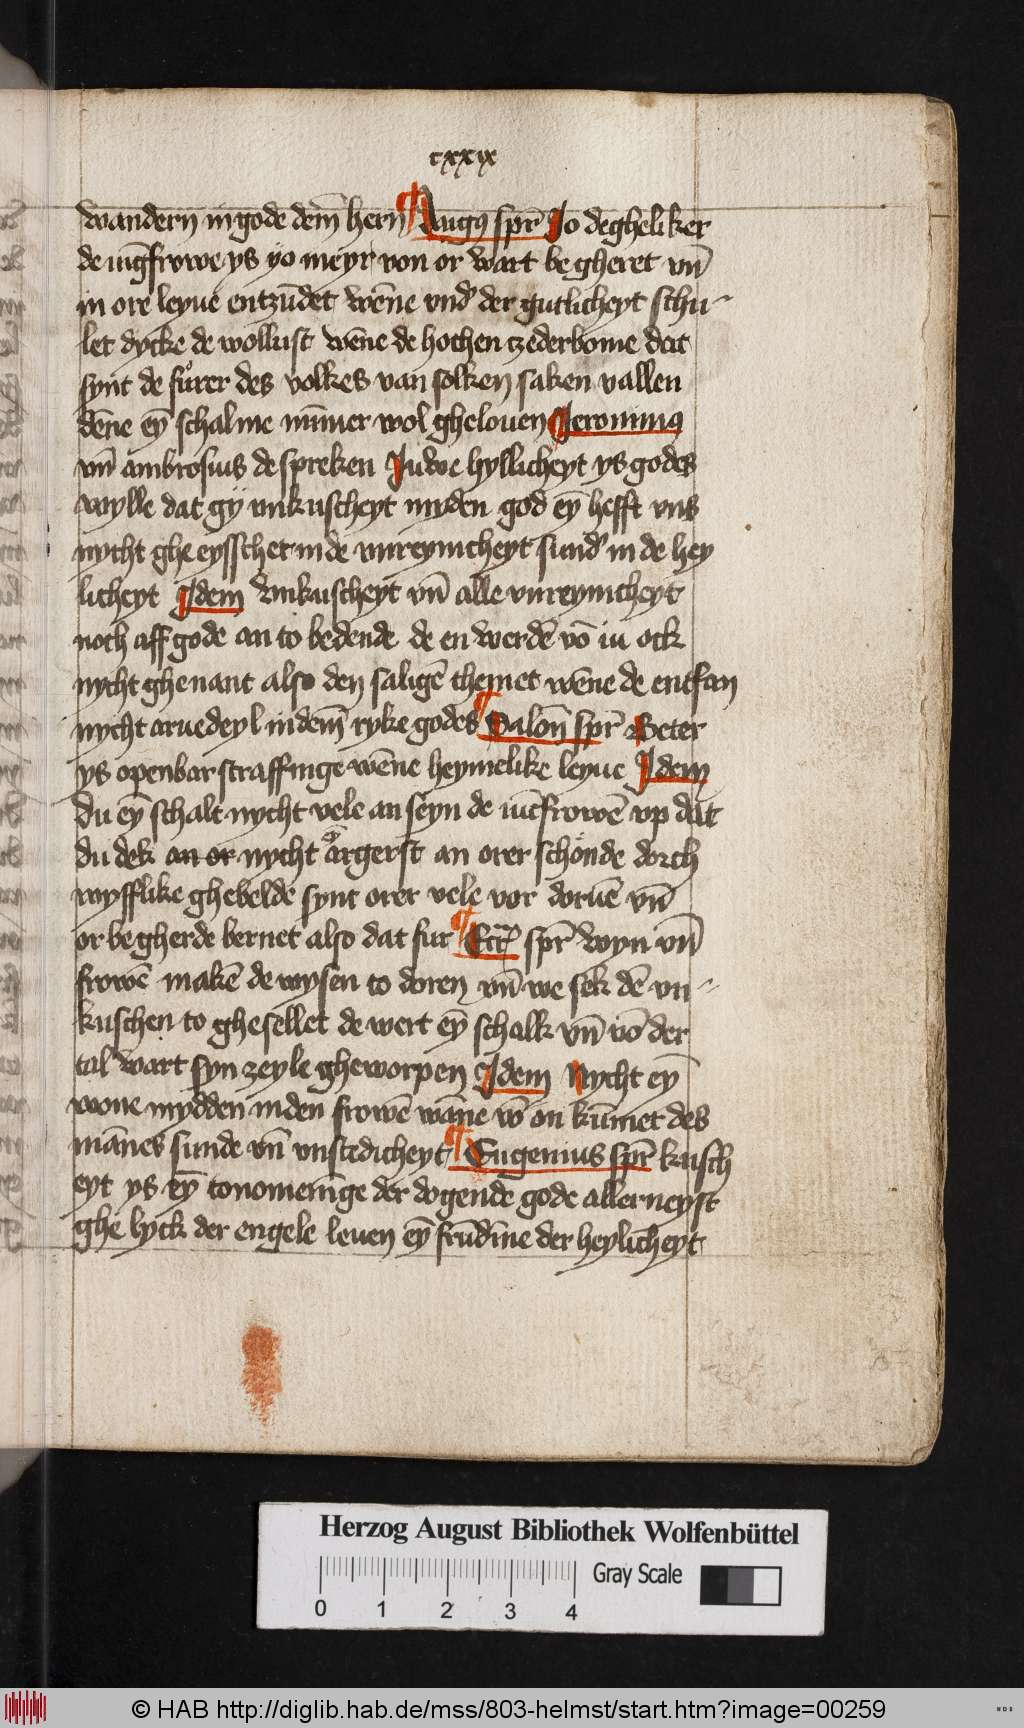 cxxix
wandern in gode dem̄ hern Augꝯ spr̄ Jo degheliker
de iūgfrowe ys yo meyr von or wart be gheret vn̄
in ore leyue entzūdet wēne vnd' der gutlicheyt schu-
let dycke de wollust wēne de hochen czederbome dat
synt de fürer des volkes van solken saken vallen
dēne ey̅ schal me nūmer wol ghelouen Jeronimꝯ
vn̄ ambrosius de spreken Juwe hyllicheyt ys godes
wylle dat gy vnkuscheyt myden god ey̅ hefft vns
nycht ghe eysschet in de vnreynicheyt sund' in de hey
licheyt Jdem Vnkuscheyt vn̄ alle vnreynicheyt
noch aff gode an to bedende de en werdē vō iu ock
nycht ghenant also den saligē themet wēne de entfan
nycht aruedeyl in dem̄ ryke godes Salon̄ spr̄ Beter
ys openbar straffinge wēne heymelike leyue Jdem
du ey̅ schalt nycht vele an seyn de iūcfrowē vp dat
du dek an or nycht ārgerst an orer schönde dorch
wyfflike ghebelde synt orer vele vor doruē vn̄
or begherde bernet also dat fur Eccꝰ spr̄ wyn vn̄
frowē makē de wysen to doren vn̄ we sek dē vn-
kuschen to ghesellet de wert ey̅ schalk vn̄ vō der
tal wart syn zeyle gheworpen Jdem Nycht ey̅
wone mydden in den frowē wāne vō on kūmet des
mānes sunde vn̄ vnstedicheyt Eugenius spr̄ kusch
eyt ys ey̅ tonomenīge der dogende gode allerneyst
ghe lyck der engele leuen ey̅ frūdīne der heylicheyt
Herzog August Bibliothek Wolfenbüttel
Gray Scale
0 1 2 3 4
© HAB http://diglib.hab.de/mss/803-helmst/start.htm?image=00259